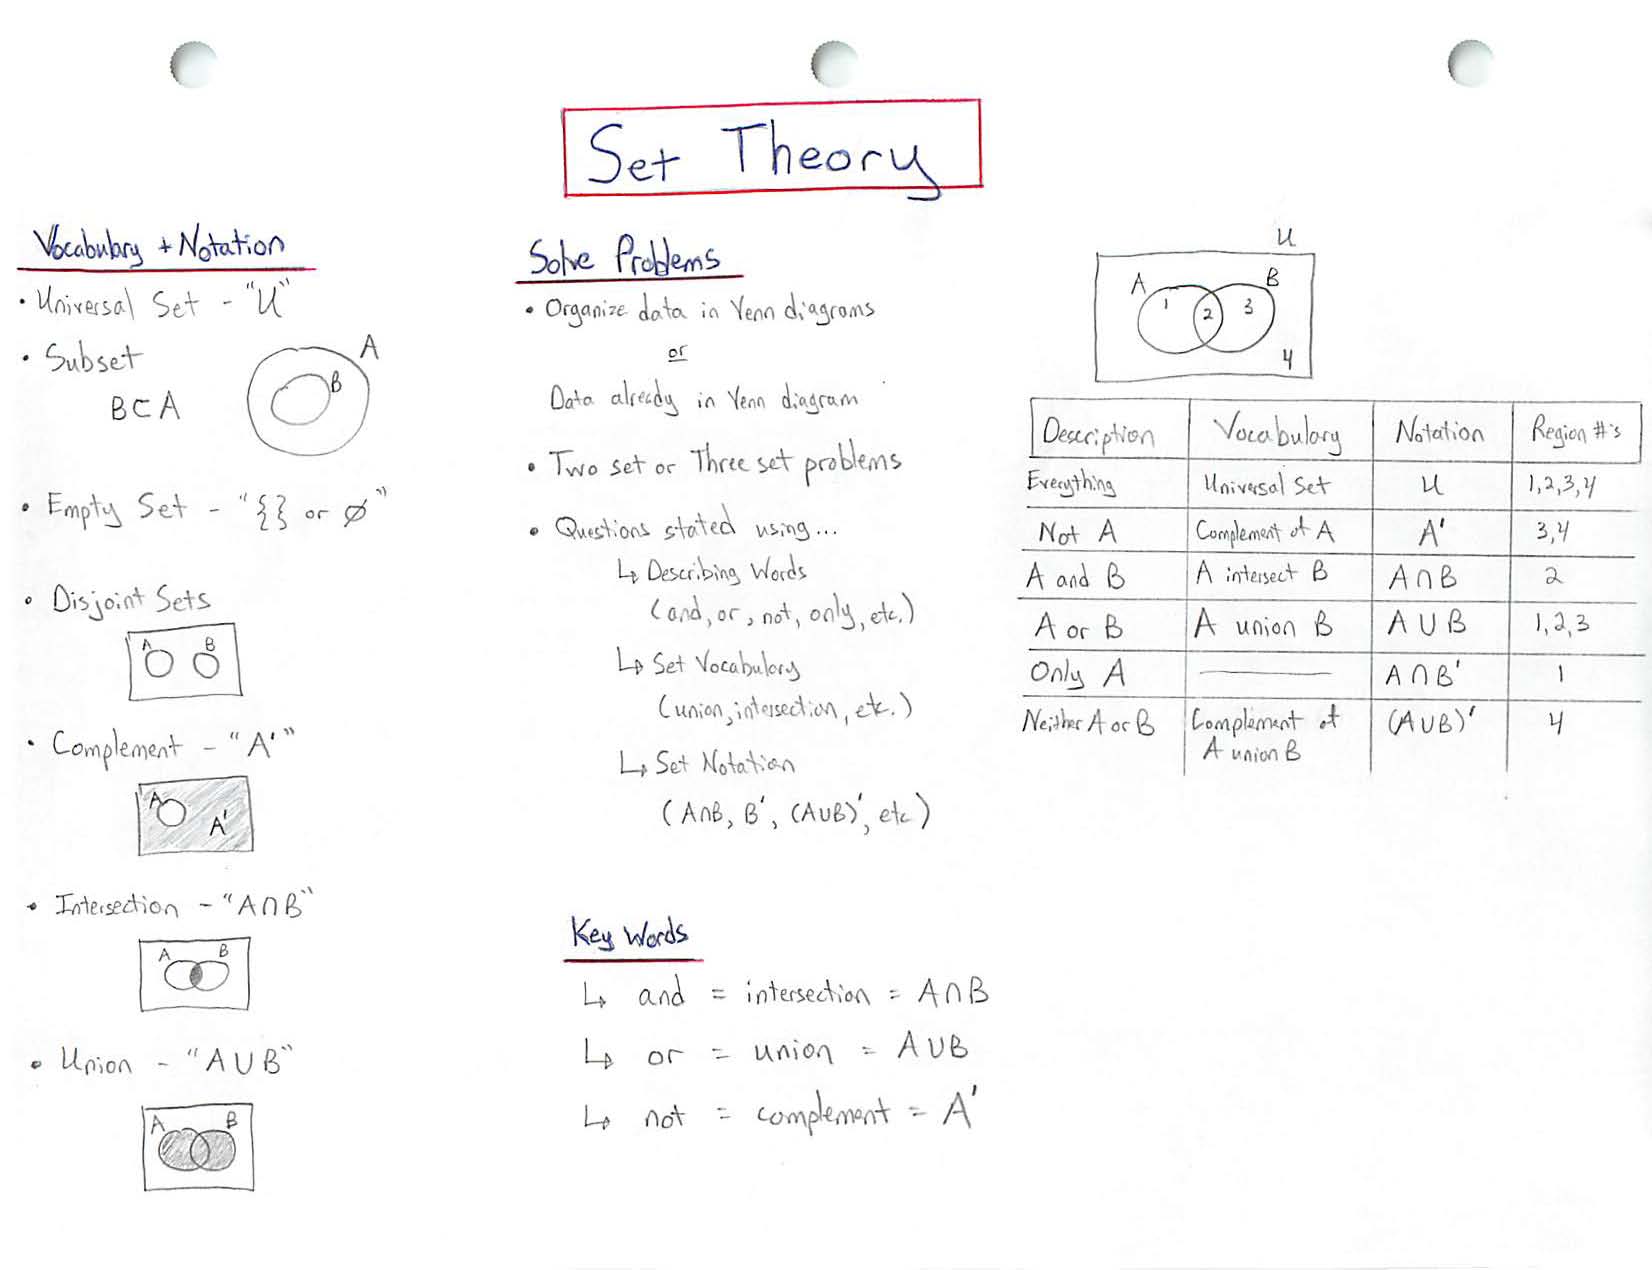 Set Theory
Vocabulary + Notation
• Universal Set - "U"
• Subset
B⊂A
A
B
• Empty Set - "{} or ∅"
• Disjoint Sets
A B
• Complement - "A'"
A
A'
• Intersection - "A∩B"
A B
• Union - "A∪B"
A B
Solve Problems
• Organize data in Venn diagrams
or
Data already in Venn diagram
• Two set or Three set problems
• Questions stated using...
↳ Describing Words
(and, or, not, only, etc.)
↳ Set Vocabulary
(union, intersection, etc.)
↳ Set Notation
(A∩B, B', (A∪B)', etc)
Key Words
↳ and = intersection = A∩B
↳ or = union = A∪B
↳ not = complement = A'
U
A B
1 2 3
4
Description Vocabulary Notation Region #'s
Everything Universal Set U 1,2,3,4
Not A Complement of A A' 3,4
A and B A intersect B A∩B 2
A or B A union B A∪B 1,2,3
Only A —— A∩B' 1
Neither A or B Complement of (A∪B)' 4
A union B